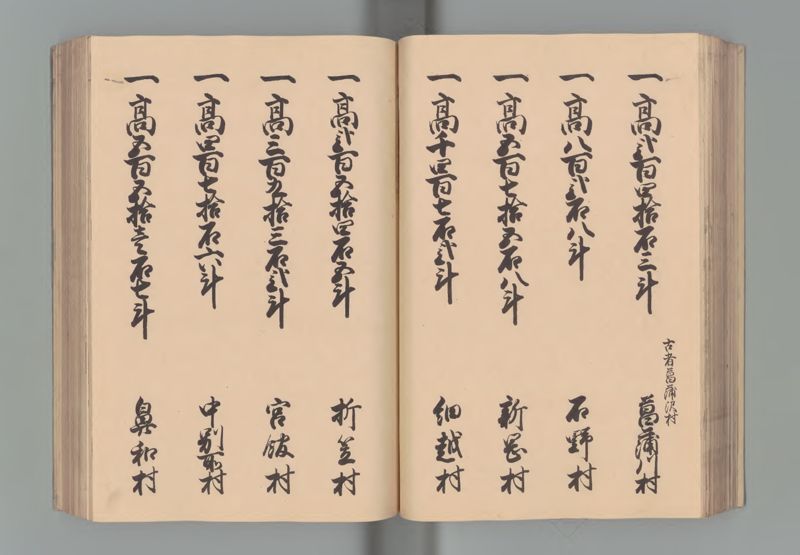 一高弐百四拾石三斗
古者菖蒲沢村
菖蒲川村
一高八百弐石八斗
石野村
一高五百七拾五石八斗
新岡村
一高千四百七石弐斗
細越村
一高弐百五拾四石五斗
折笠村
一高三百九拾三石弐斗
宮舘村
一高四百七拾石六斗
中別所村
一高五百五拾壱石七斗
鼻和村